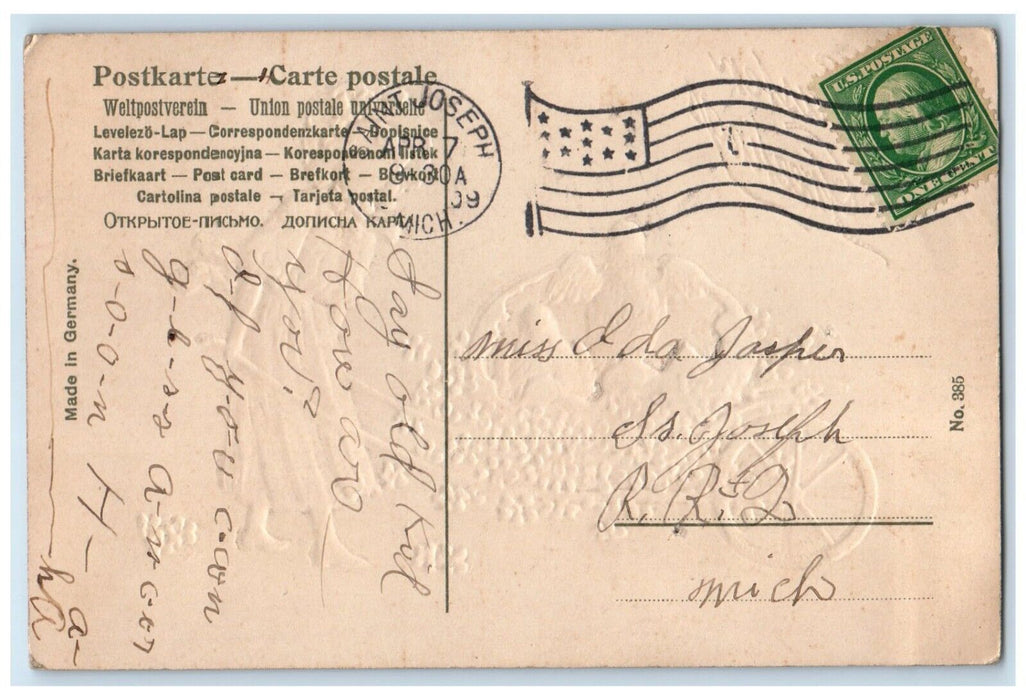 Postkarte — Carte postale
Weltpostverein — Union postale universelle
Levelező-Lap — Correspondenzkarte — Dopisnice
Karta korespondencyjna — Korespondenčni listek
Briefkaart — Post card — Brefkort — Brevkort
Cartolina postale — Tarjeta postal.
ОТКРЫТОЕ-ПИСЬМО. ДОПИСНА КАРТА
SAINT JOSEPH
APR 7
9-30A
09
MICH.
1
U.S. POSTAGE
ONE CENT
Say old Kid
How are
you?
if y-o-u c-an
g-e-s-s
s-o-o-n
H-
a-
ha
Made in Germany.
miss Ida Jasper
St. Joseph
R. R. #2
mich
No. 385